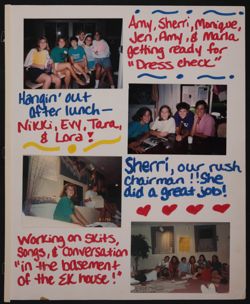 Amy, Sherri, Monique,
Jen, Amy, & Marla
getting ready for
"Dress check"
Hangin' out
after lunch—
Nikki, Evy, Tara,
& Lora!
Sherri, our rush
chairman!! She
did a great job!
Working on skits,
Songs, & Conversation
"in the basement
of the EK house!"